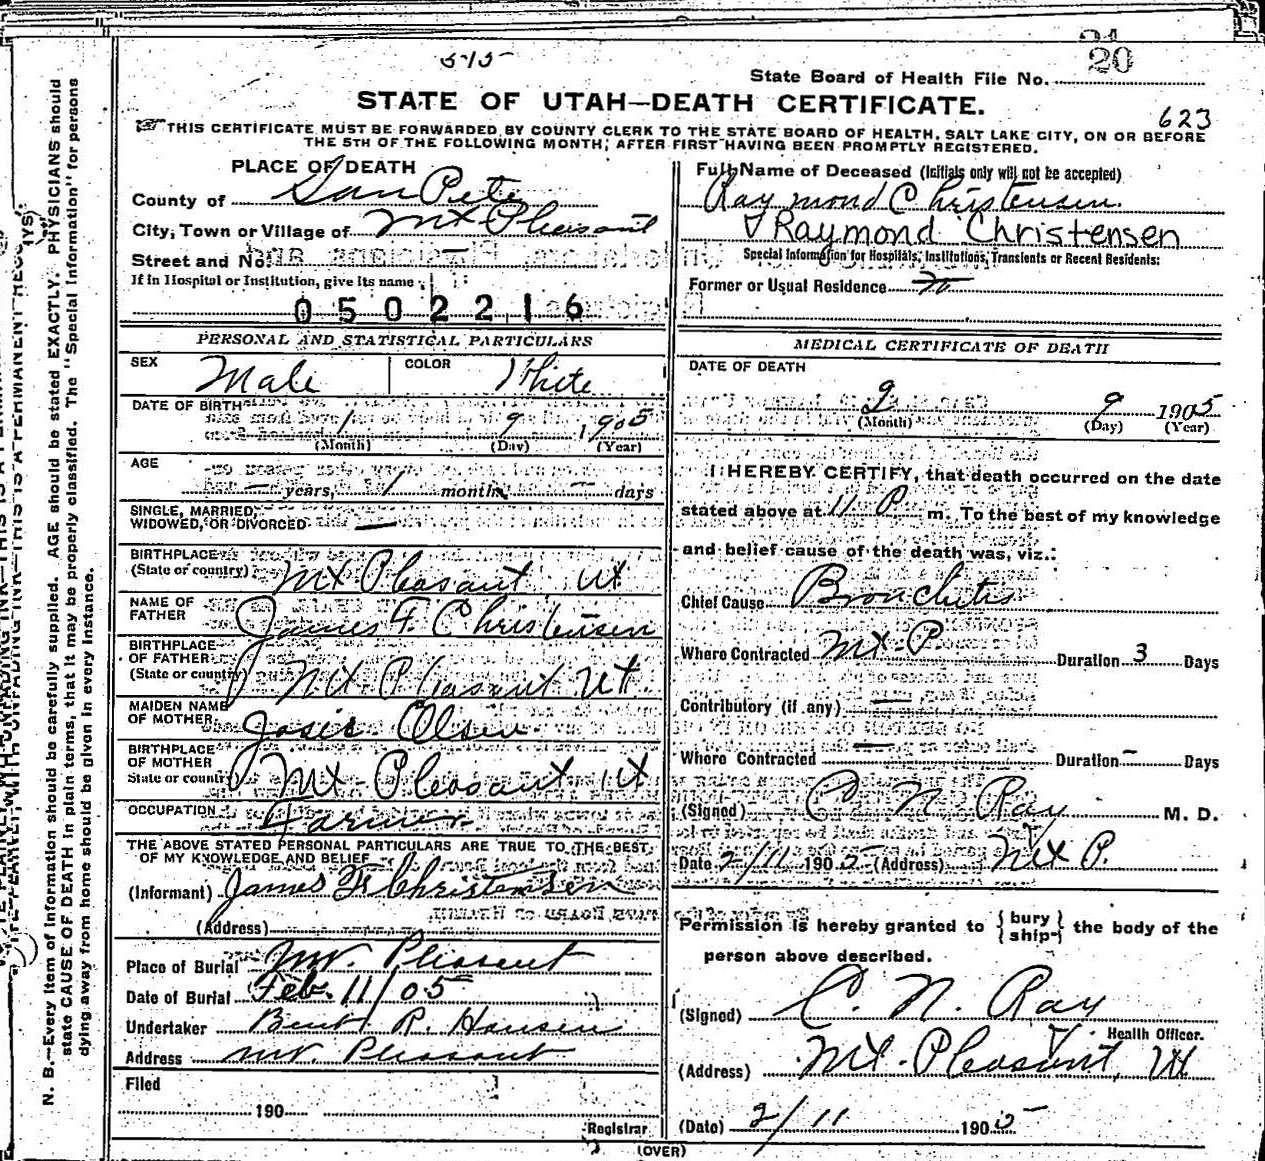 515
21
20
State Board of Health File No.
STATE OF UTAH—DEATH CERTIFICATE.
623
THIS CERTIFICATE MUST BE FORWARDED BY COUNTY CLERK TO THE STATE BOARD OF HEALTH, SALT LAKE CITY, ON OR BEFORE
THE 5TH OF THE FOLLOWING MONTH, AFTER FIRST HAVING BEEN PROMPTLY REGISTERED.
PLACE OF DEATH
County of San Pete
City, Town or Village of Mt Pleasant
Street and No.
If in Hospital or Institution, give its name
0502216
Full Name of Deceased (Initials only will not be accepted)
Raymond Christensen
Raymond Christensen
Special Information for Hospitals, Institutions, Transients or Recent Residents:
Former or Usual Residence
PERSONAL AND STATISTICAL PARTICULARS
SEX Male COLOR White
DATE OF BIRTH 1 9 1905
(Month) (Day) (Year)
AGE
— years, 1 months — days
SINGLE, MARRIED,
WIDOWED, OR DIVORCED —
BIRTHPLACE
(State or country) Mt Pleasant Ut
NAME OF
FATHER James F. Christensen
BIRTHPLACE
OF FATHER
(State or country) Mt. Pleasant Ut.
MAIDEN NAME
OF MOTHER Josie Olsen
BIRTHPLACE
OF MOTHER
State or country) Mt Pleasant Ut
OCCUPATION Farmer
THE ABOVE STATED PERSONAL PARTICULARS ARE TRUE TO THE BEST
OF MY KNOWLEDGE AND BELIEF
(Informant) James F. Christensen
(Address)
Place of Burial Mt. Pleasant
Date of Burial Feb. 11/05
Undertaker Bent R. Hansen
Address Mt. Pleasant
Filed
190
Registrar
MEDICAL CERTIFICATE OF DEATH
DATE OF DEATH
2 9 1905
(Month) (Day) (Year)
I HEREBY CERTIFY, that death occurred on the date
stated above at 11 P. m. To the best of my knowledge
and belief cause of the death was, viz.:
Chief Cause Bronchitis
Where Contracted Mt. P Duration 3 Days
Contributory (if any) —
Where Contracted — Duration — Days
(Signed) C. N. Ray M. D.
Date 2/11 1905 (Address) Mt P.
Permission is hereby granted to {bury ship} the body of the
person above described.
(Signed) C. N. Ray
Health Officer.
(Address) Mt. Pleasant, Ut
(Date) 2/11 1905
(OVER)
N. B.—Every item of information should be carefully supplied. AGE should be stated EXACTLY. PHYSICIANS should
state CAUSE OF DEATH in plain terms, that it may be properly classified. The "Special Information" for persons
dying away from home should be given in every instance.